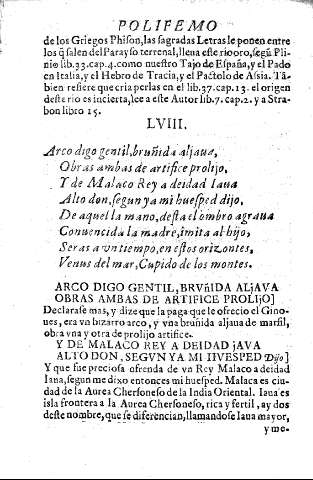 POLIFEMO
de los Griegos Phison, las sagradas Letras le ponen entre
los q̃ salen del Parayso terrenal, llena este rio oro, segũ Pli-
nio lib. 33. cap. 4. como nuestro Tajo de España, y el Pado
en Italia, y el Hebro de Tracia, y el Pactolo de Assia. Tã-
bien refiere que cria perlas en el lib. 37. cap. 13. el origen
deste rio es incierta, lee a este Autor lib. 7. cap. 2. y a Stra-
bon libro 15.
LVIII.
Arco digo gentil, bruñida aljaua,
Obras ambas de artifice prolijo,
Y de Malaco Rey a deidad Iaua
Alto don, segun ya mi huesped dijo,
De aquel la mano, desta el ombro agraua
Conuencida la madre, imita al hijo,
Seras a vn tiempo, en estos orizontes,
Venus del mar, Cupido de los montes.
ARCO DIGO GENTIL, BRVñIDA ALJAVA
OBRAS AMBAS DE ARTIFICE PROLIJO]
Declarase mas, y dize que la paga que le ofrecio el Gino-
ues, era vn bizarro arco, y vna bruñida aljaua de marfil,
obra vna y otra de prolijo artifice.
Y DE MALACO REY A DEIDAD JAVA
ALTO DON, SEGVN YA MI HVESPED Dijo]
Y que fue preciosa ofrenda de vn Rey Malaco a deidad
Iaua, segun me dixo entonces mi huesped. Malaca es ciu-
dad de la Aurea Chersoneso de la India Oriental. Iaua es
isla frontera a la Aurea Chersoneso, rica y fertil, ay dos
deste nombre, que se diferencian, llamandose Iaua mayor,
y me-